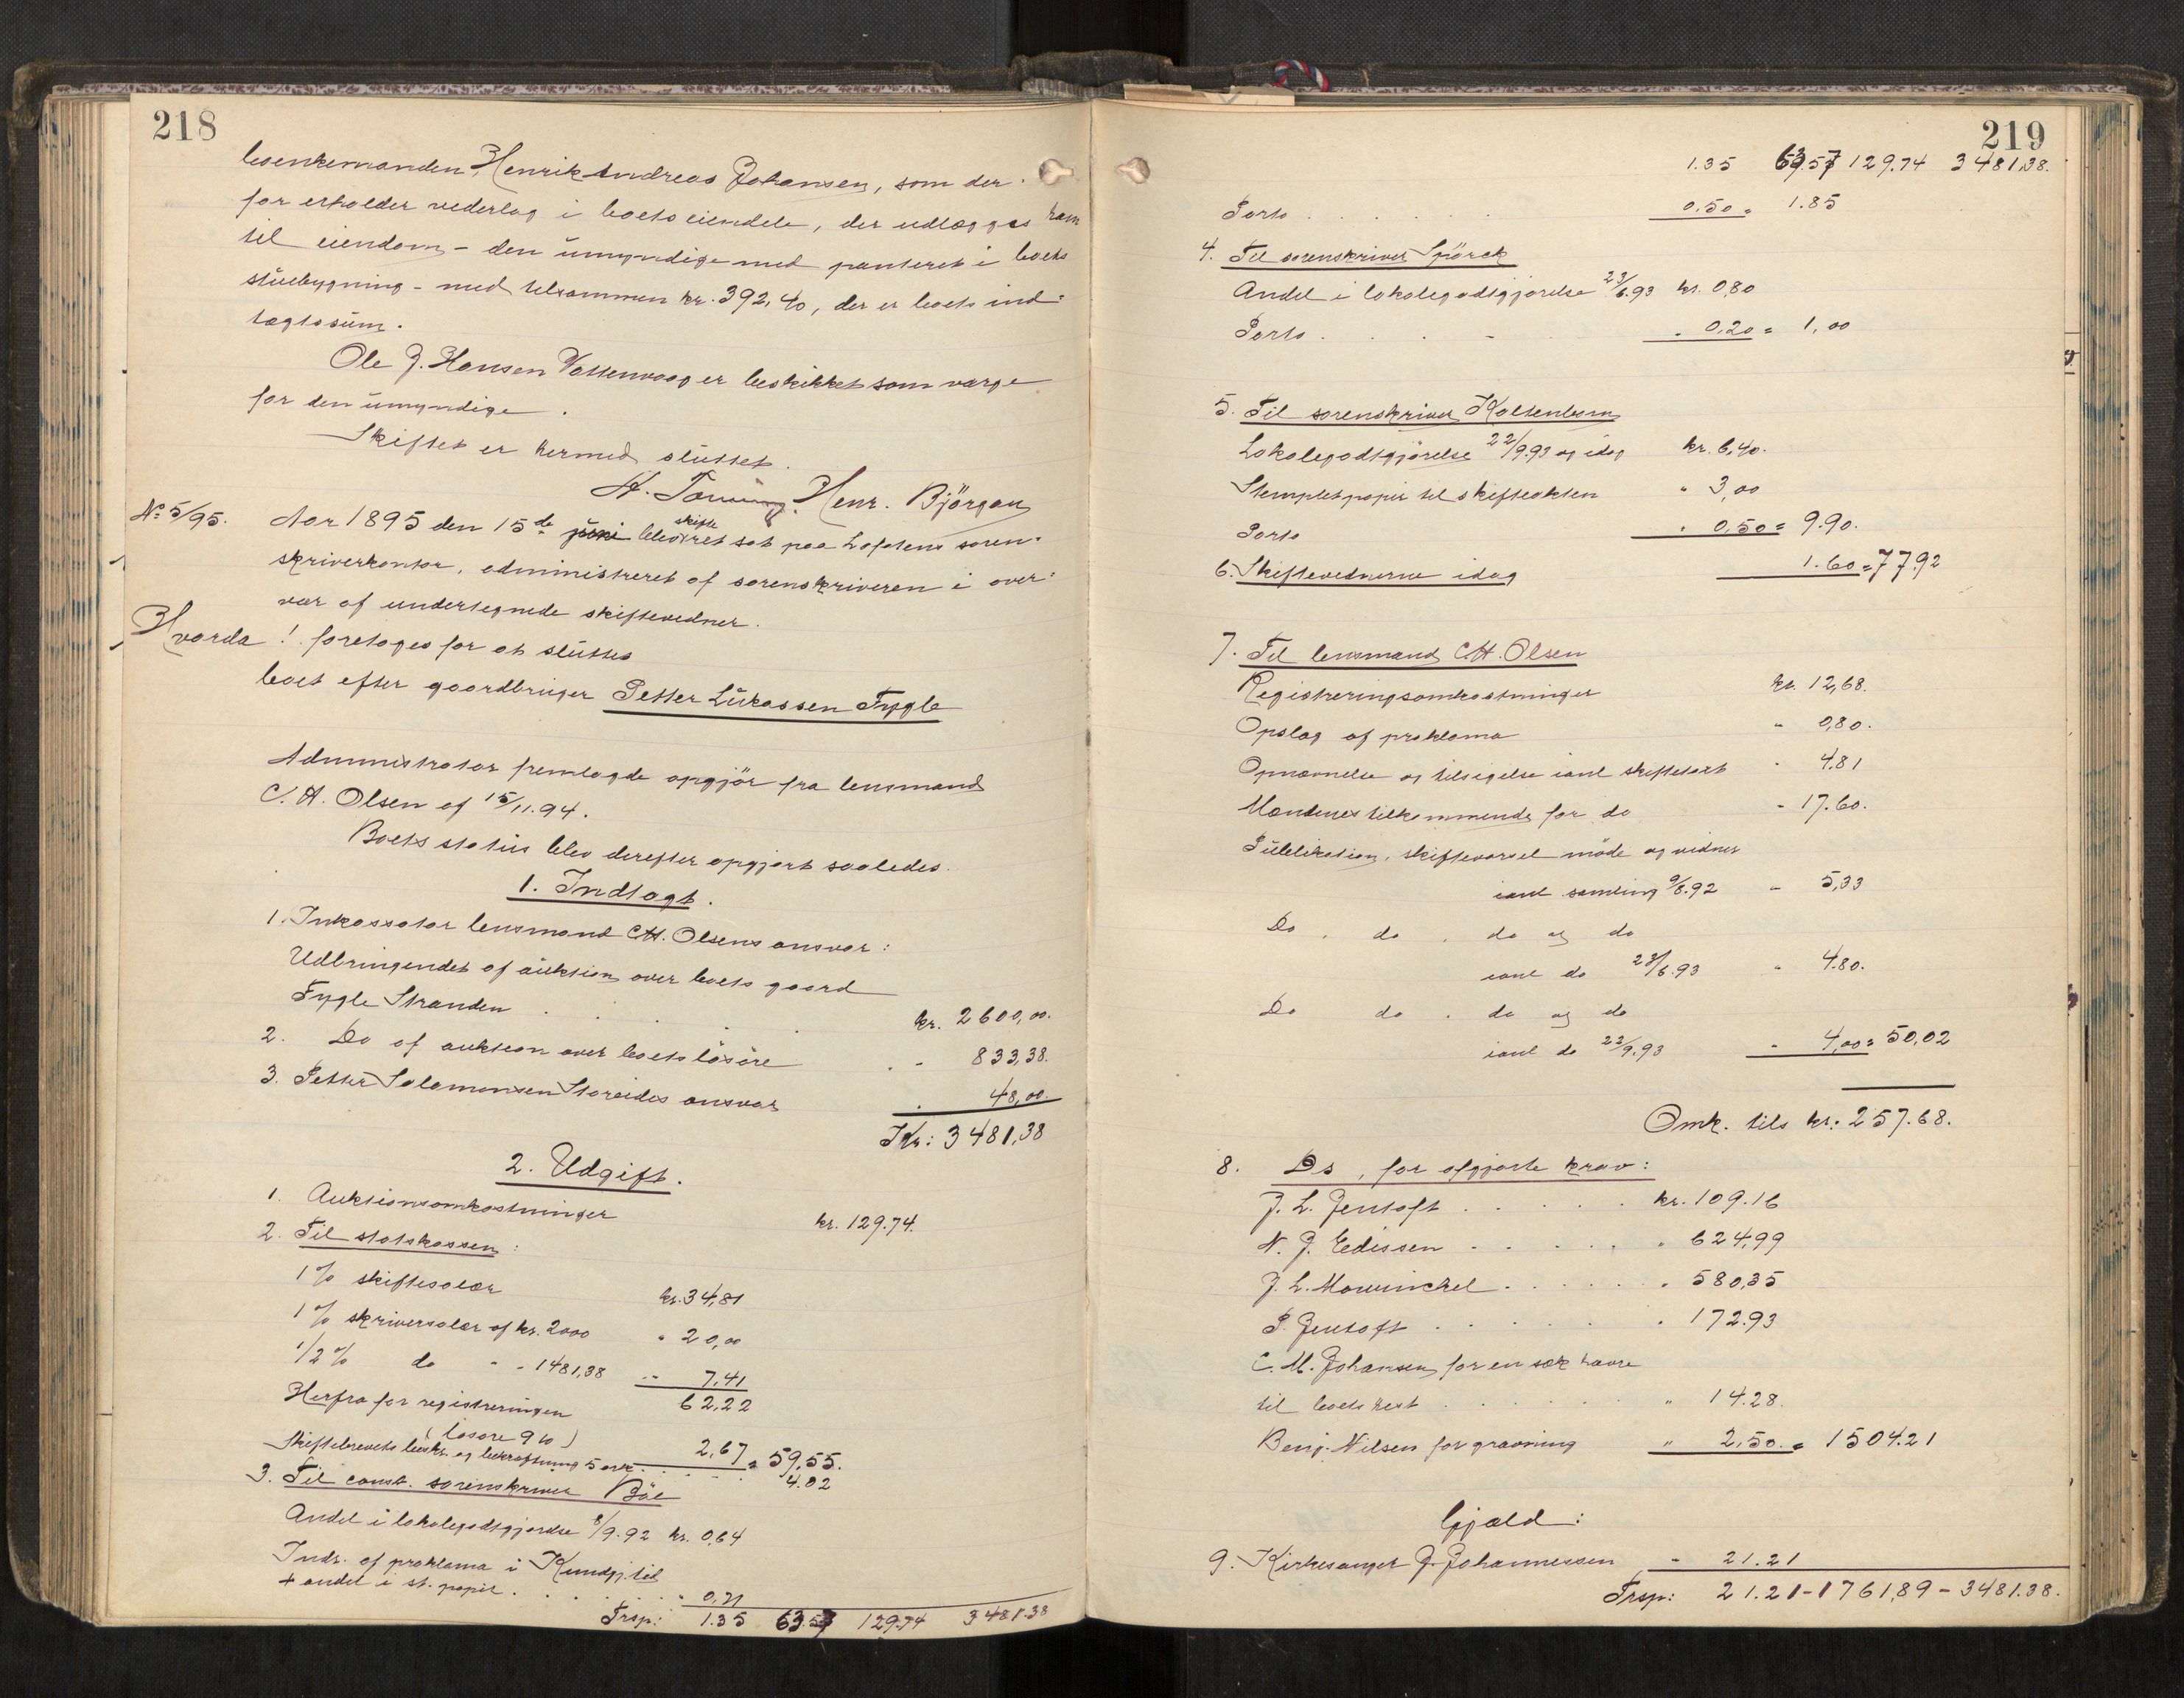 218
boenkemanden Henrik Andreas Johansen, som der-
for erholder vederlag i boets eiendele, der udlægges ham
til eiendom - den umyndige med panteret i boets
stuebygning - med tilsammen kr. 392,40, der er boets ind-
tægtssum.
Ole J. Hansen Vattenvaag er beskikket som værge
for den umyndige.
Skiftet er hermed sluttet.
Henr. Björgan
No 5/95. Aar 1895 den 15de juni blev skifteret sat paa Lofotens soren-
skriverkontor, administreret af sorenskriveren i over-
vær af undertegnede skiftevidner.
Hvorda! foretoges for at sluttes
boet efter gaardbruger Petter Lukassen Fygle
Administrator fremlagde opgjör fra lensmand
C. A. Olsen af 15/11.94.
Boets status blev derefter opgjort saaledes.
1. Indtægt.
1. Inkassator lensmand C.A. Olsens ansvar:
Udbringendet af auktion over boets gaard
Fygle Stranden . . . . kr. 2600,00.
2. Do af auktion over boets lösöre . - 833,38.
3. Petter Salamonsen Storeides ansvar . 48,00.
Kr: 3481,38
2. Udgift.
1. Auktionsomkostninger kr. 129.74.
2. Til statskassen:
1 % skiftesalær kr. 34,81
1 % skriversalær af kr. 2000 " 20,00
1/2 % do - - 1481,38 -- 7,41
62,22
Herfra for registreringen
(lösöre 9 10) 2,67 = 59,55.
Skiftebrevets beskr. og bekræftning 5 ark . . . 4.02
3. Til const. sorenskriver Böe
Andel i lokalegodtgjörelse 8/9.92 kr. 0,64
Indr. af proklama i Kundgj.tid
+ andel i st. papir . . . . " 0,71
Trsp: 1.35 63.57 129.74 3481.38
219
1.35 63.57 129.74 3481,38.
Porto . . . . . 0,50 = 1.85
4. Til sorenskriver Spörck
Andel i lokalegodtgjörelse 23/6.93 kr. 0,80
Porto . . . - . 0,20 = 1,00
5. Til sorenskriver Koltenborn
Lokalegodtgjörelse 22/9.93 og idag kr. 6,40.
Stemplet papir til skifteakten " 3,00
Porto " 0,50 = 9.90.
6. Skiftevidnerne idag 1.60 = 77.92
7. Til lensmand C.A. Olsen
Registreringsomkostninger kr. 12,68.
Opslag af proklama " 0,80.
Opnævnelse og tilsigelse ianl skiftetaxt " 4.81
Mændenes tilkommende for do - 17.60.
Publikation, skiftevarsel möde og vidner
ianl samling 9/8.92 - 5,33
Do , do , do og do
ianl do 23/6.93 " 4.80.
Do do . do og do
ianl do 22/9.93 " 4,00 = 50,02
Omk. tils kr. 257.68.
8. Do, for afgjorte krav:
J. L. Jentoft . . . . . kr. 109.16
N. J. Edissen . . . . . " 624,99
J. L. Mowinckel . . . . . " 580,35
P. Jentoft . . . . . " 172.93
C. M. Johansen for en sæk havre
til boets hest . . . . . " 14.28.
Benj. Nilsen for gravning " 2,50. = 1504.21
Gjæld:
9. Kirkesanger J. Johannessen - 21.21
Trsp: 21.21 - 1761,89 - 3481.38.